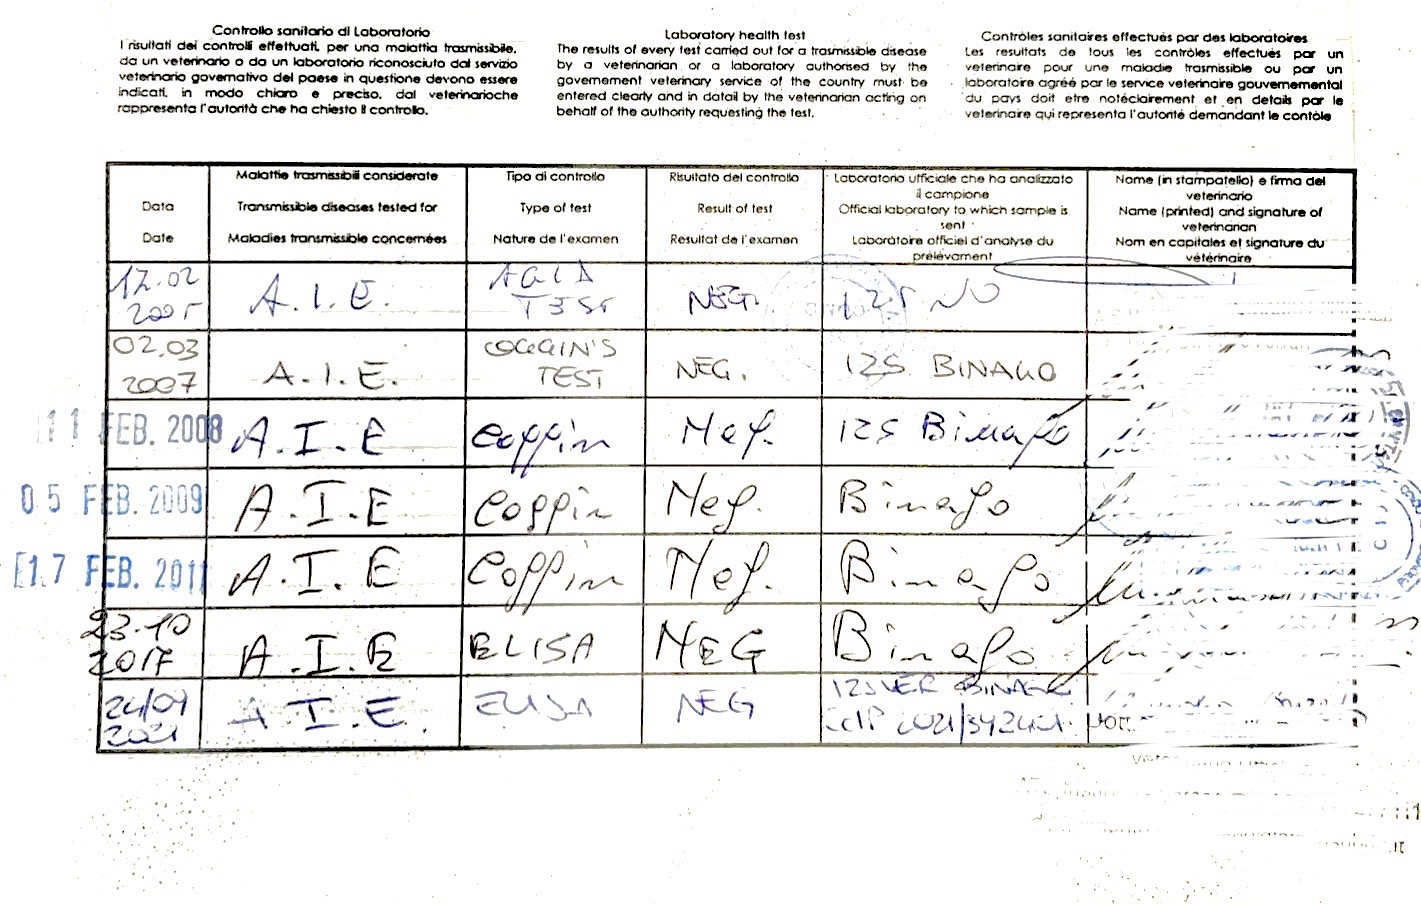 Controllo sanitario di Laboratorio
I risultati dei controlli effettuati, per una malattia trasmissibile,
da un veterinario o da un laboratorio riconosciuto dal servizio
veterinario governativo del paese in questione devono essere
indicati, in modo chiaro e preciso, dal veterinarioche
rappresenta l'autorità che ha chiesto il controllo.
Laboratory health test
The results of every test carried out for a trasmissible disease
by a veterinarian or a laboratory authorised by the
governement veterinary service of the country must be
entered clearly and in datail by the veterinarian acting on
behalf of the authority requesting the test.
Contrôles sanitaires effectués par des laboratoires
Les resultats de tous les contrôles effectués par un
veterinaire pour une maladie trasmissible ou par un
laboratoire agréé par le service veterinaire gouvernemental
du pays doit etre notéclairement et en details par le
veterinaire qui representa l'autorité demandant le contôle
Data
Date
Malattie trasmissibili considerate
Transmissible diseases tested for
Maladies transmissible concernées
Tipo di controllo
Type of test
Nature de l'examen
Risultato del controllo
Result of test
Resultat de l'examen
Laboratorio ufficiale che ha analizzato
il campione
Official laboratory to which sample is
sent
Laboratoire officiel d'analyse du
prélévament
Nome (in stampatello) e firma del
veterinario
Name (printed) and signature of
veterinarian
Nom en capitales et signature du
vétérinaire
12.02
2005
A.I.E.
TEST
NEG.
02.03
2007
A.I.E.
COGGIN'S
TEST
NEG.
IZS BINAGO
11 FEB. 2008
A.I.E
Coggin
Neg.
IZS Binago
05 FEB. 2009
A.I.E
Coggin
Neg.
Binago
17 FEB. 2011
A.I.E
Coggin
Neg.
Binago
23.10
2017
A.I.E
ELISA
NEG
Binago
2021
A.I.E.
ELISA
NEG
BINAGO